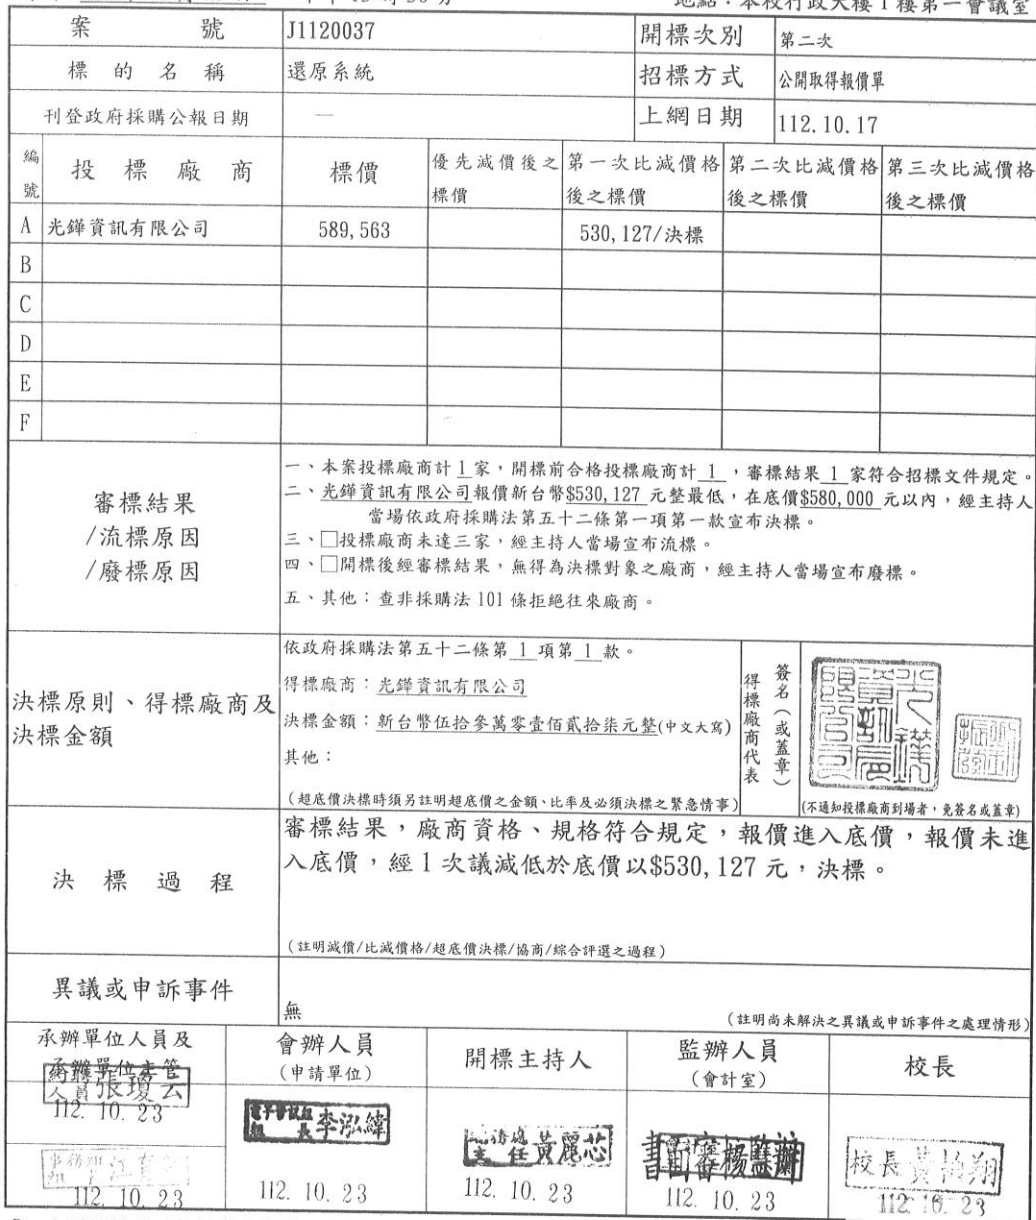 地點：本校行政大樓1樓第一會議室
案號 J1120037 開標次別 第二次
標的名稱 還原系統 招標方式 公開取得報價單
刊登政府採購公報日期 — 上網日期 112.10.17
編號 投標廠商 標價 優先減價後之標價 第一次比減價格後之標價 第二次比減價格後之標價 第三次比減價格後之標價
A 光鏵資訊有限公司 589,563 530,127/決標
B
C
D
E
F
審標結果
/流標原因
/廢標原因
一、本案投標廠商計 1 家，開標前合格投標廠商計 1 ，審標結果 1 家符合招標文件規定。
二、光鏵資訊有限公司報價新台幣$530,127 元整最低，在底價$580,000 元以內，經主持人
當場依政府採購法第五十二條第一項第一款宣布決標。
三、□投標廠商未達三家，經主持人當場宣布流標。
四、□開標後經審標結果，無得為決標對象之廠商，經主持人當場宣布廢標。
五、其他：查非採購法 101 條拒絕往來廠商。
決標原則、得標廠商及
決標金額
依政府採購法第五十二條第 1 項第 1 款。
得標廠商：光鏵資訊有限公司
決標金額：新台幣伍拾參萬零壹佰貳拾柒元整(中文大寫)
其他：
（超底價決標時須另註明超底價之金額、比率及必須決標之緊急情事）
得標廠商代表
簽名（或蓋章）
光鏵資訊有限公司
(不通知投標廠商到場者，免簽名或蓋章)
決標過程
審標結果，廠商資格、規格符合規定，報價進入底價，報價未進
入底價，經 1 次議減低於底價以$530,127 元，決標。
（註明減價/比減價格/超底價決標/協商/綜合評選之過程）
異議或申訴事件
無
（註明尚未解決之異議或申訴事件之處理情形）
承辦單位人員及
承辦單位主管
會辦人員
（申請單位）
開標主持人
監辦人員
（會計室）
校長
張瓊云
112. 10. 23
112. 10. 23
組長 李泓緯
112. 10. 23
總務處主任 黃麗芯
112. 10. 23
112. 10. 23
校長 黃柏翔
112. 10. 23